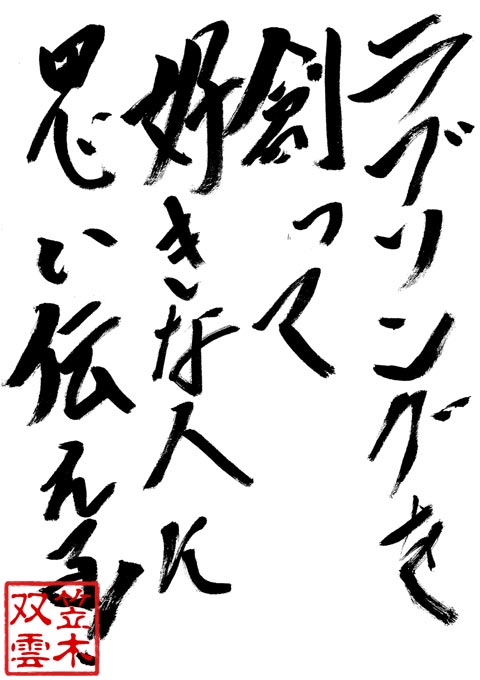 ラブリングを
創って
好きな人に
思い伝える
笠木
双雲